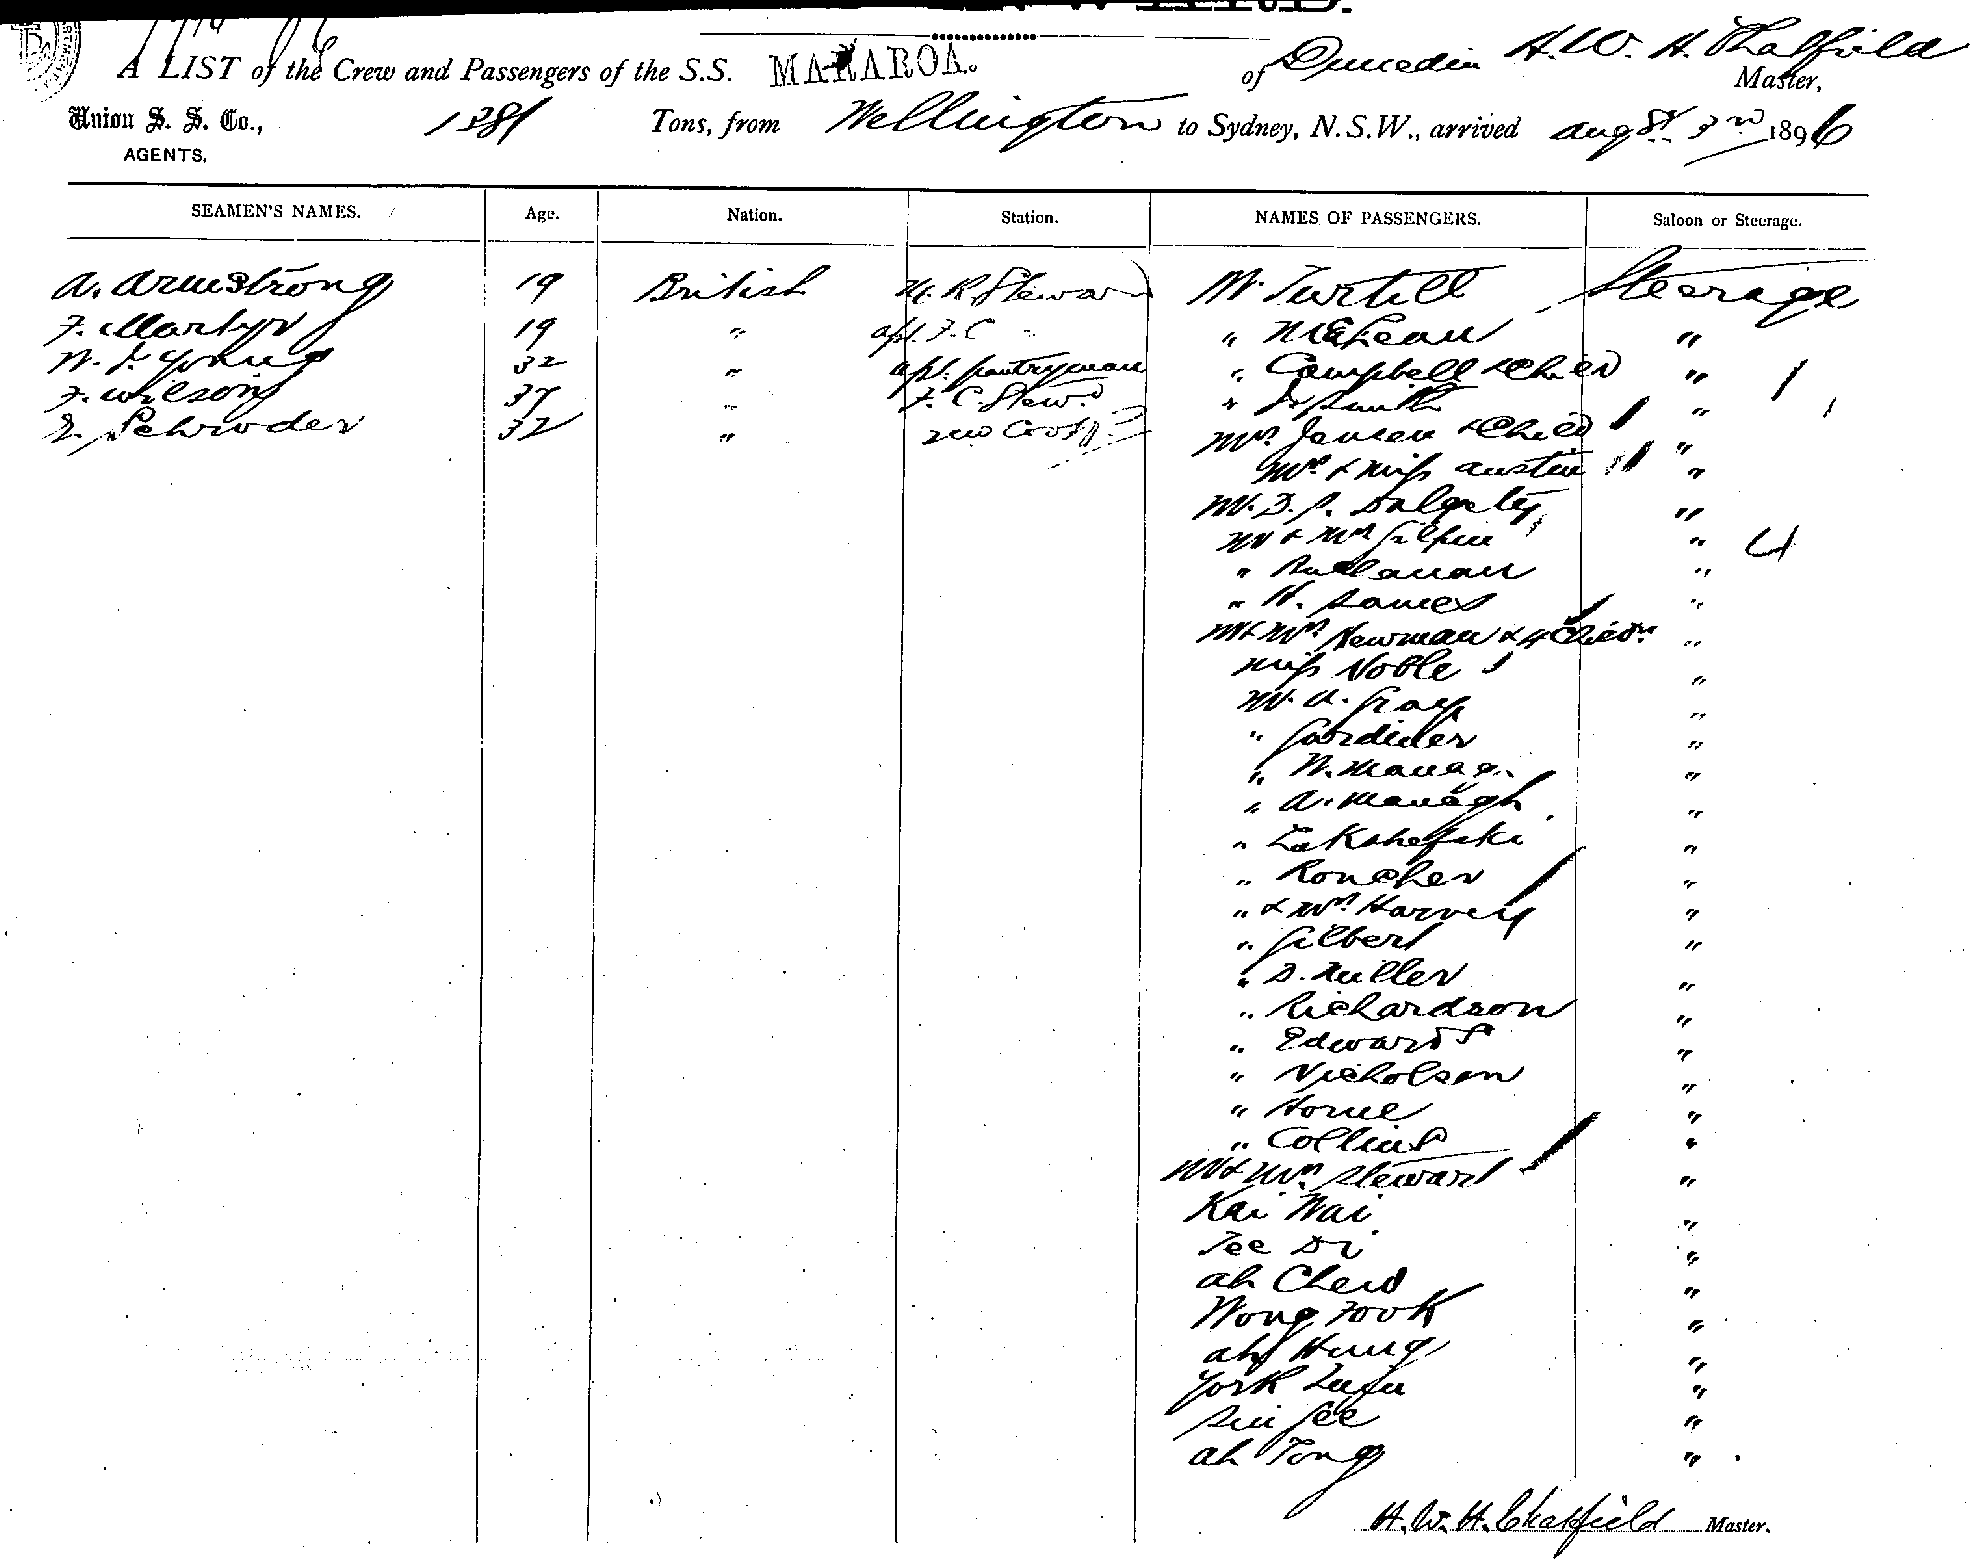 A LIST of the Crew and Passengers of the S.S. MARAROA. of Dunedin H. W. H. Chatfield Master,
Union S. S. Co., AGENTS, 1381 Tons, from Wellington to Sydney, N.S.W., arrived Augst 3rd 1896
SEAMEN'S NAMES. Age. Nation. Station. NAMES OF PASSENGERS. Saloon or Steerage.
A. Armstrong 19 British Steward Mr. Turtill Steerage
F. Martyn 19 " asst. F.C. " " McLean "
W. J. Young 32 " asst. pantryman " Campbell & Child " 1
F. Wilson 37 " F. C. Stewd " Smith "
Schroder 32 " 2nd Cook Mrs Jensen & Child 1 "
Mrs & Miss Austin 11 "
Mr. D. S. Dalgety "
Mr & Mrs Gilpin " 4
" Buchanan "
" H. James "
Mr & Mrs Newman & 4 Chidn "
Miss Noble 1 "
Mr. A. Gray "
" Gardiner "
" W. "
" A. Managh "
" "
" Roncher "
" & Mrs Harvey "
" Gilbert "
" D. Miller "
" Richardson "
" Edwards "
" Nicholson "
" Horne "
" Collins "
Mr & Mrs Stewart 1 "
Kai Wai "
Tee Di "
Ah "
Wong Fook "
Ah Hung "
York "
Sin Gee "
Ah Tong "
H. W. H. Chatfield Master.